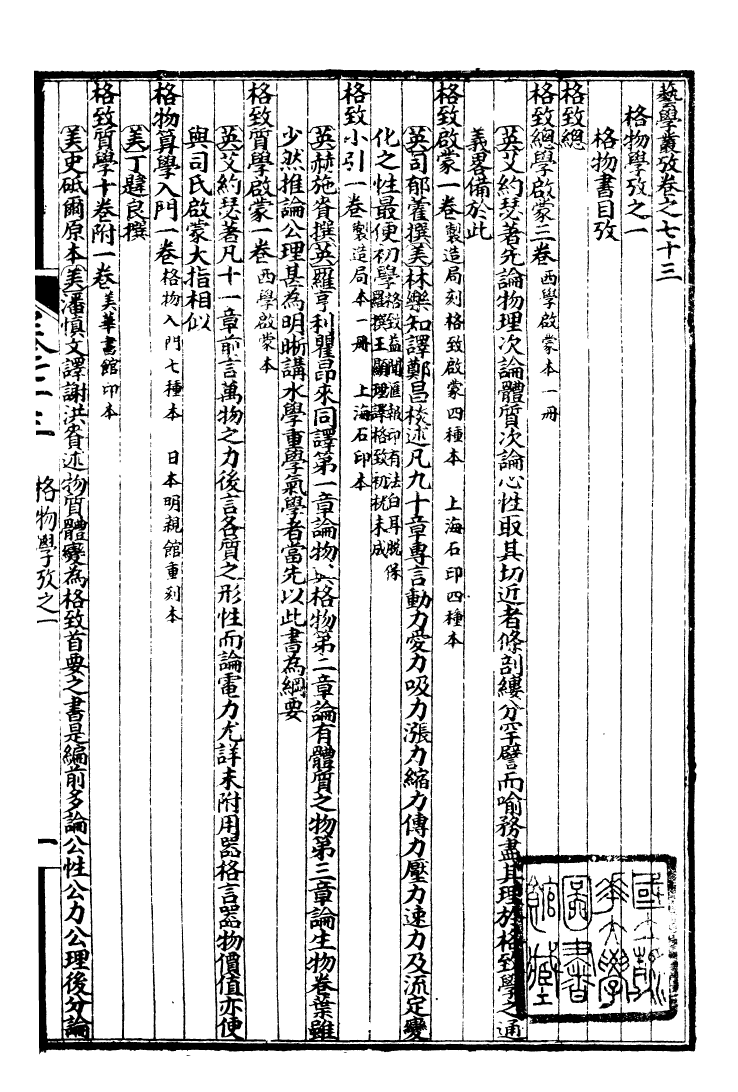 藝學叢攷卷之七十三
格物學攷之一
格物書目攷
格致總
格致總學啟蒙三卷 西學啟蒙本一冊
英艾約瑟著先論物理次論體質次論心性取其切近者條剖縷分罕譬而喻務盡其理於格致學之通
義畧備於此
格致啟蒙一卷 製造局刻格致啟蒙四種本 上海石印四種本
英司郁藿撰美林樂知譯鄭昌棪述凡九十章專言動力愛力吸力漲力縮力傳力壓力速力及流定變
化之性最便初學 格致益聞匯報印有法白耳脫保
羅撰王顯理譯格致初桄未成
格致小引一卷 製造局本一冊 上海石印本
英赫施賚撰英羅亨利瞿昂來同譯第一章論物、與格物第二章論有體質之物第三章論生物卷葉雖
少然推論公理甚為明晰講水學重學氣學者當先以此書為綱要
格致質學啟蒙一卷 西學啟蒙本
英艾約瑟著凡十一章前言萬物之力後言各質之形性而論電力尤詳末附用器格言器物價值亦便
與司氏啟蒙大指相似
格物算學入門一卷 格物入門七種本 日本明親館重刻本
美丁韙良撰
格致質學十卷附一卷 美華書館印本
美史砥爾原本美潘慎文譯謝洪賚述物質體變為格致首要之書是編前多論公性公力公理後分論
卷七十三
格物學攷之一
一
國立
華大學
圖書
館藏